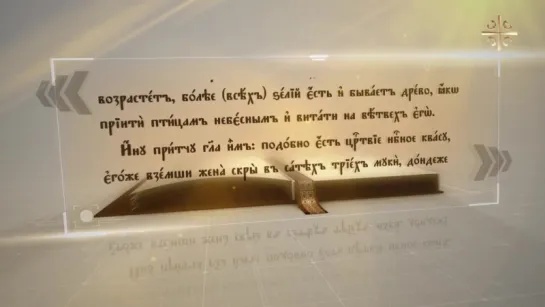 возрасте́тъ, бо́лѣе (всѣ́хъ) ѕе́лїй є҆́сть и҆ быва́етъ дре́во, ꙗ҆́кѡ
прїити́ пти́цамъ небє́снымъ и҆ вита́ти на вѣ́твехъ є҆гѡ̀.
И҆́ну при́тчу гл҃а и҆̀мъ: подо́бно є҆́сть црⷭ҇твїе нбⷭ҇ное ква́су,
є҆го́же взе́мши жена̀ скры̀ въ са́тѣхъ трїе́хъ мукѝ, до́ндеже